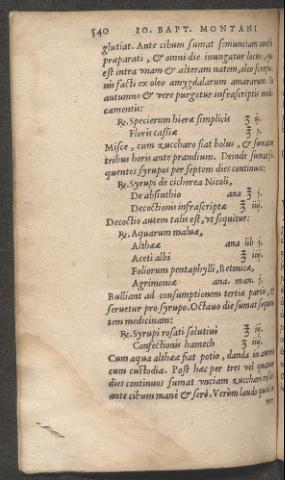 540 IO. BAPT. MONTANI
glutiat. Ante cibum sumat semunciam
præparati, & omni die inungatur locus,
est intra vnam & alteram natem, oleo
nis facti ex oleo amygdalarum amararum. In
autumno & vere purgetur infrascriptis medi-
camentis:
℞. Specierum hieræ simplicis ʒ ij.
Floris cassiæ ℥ j.
Misce, cum zuccharo fiat bolus, & sumat
tribus horis ante prandium. Deinde sumat
quentes syrupos per septem dies continuos:
℞. Syrupi de cichorea Nicoli,
De absinthio ana ℥ j.
Decoctionis infrascriptæ ℥ iiij.
Decoctio autem talis est, vt sequitur:
℞. Aquarum maluæ,
Altheæ ana lib j.
Aceti albi ℥ iiij.
Foliorum pentaphylli, Betonicæ,
Agrimoniæ ana. man. j.
Bulliant ad consumptionem tertiæ partis, &
seruetur pro syrupo. Octauo die sumat sequen
tem medicinam:
℞. Syrupi rosati solutiui ℥ iij.
Confectionis hamech ℥ iij.
Cum aqua altheæ fiat potio, danda in aurora
cum custodia. Post hæc per tres vel quatuor
dies continuos sumat vnciam zucchari rosati
ante cibum manè & serò. Verùm laudo